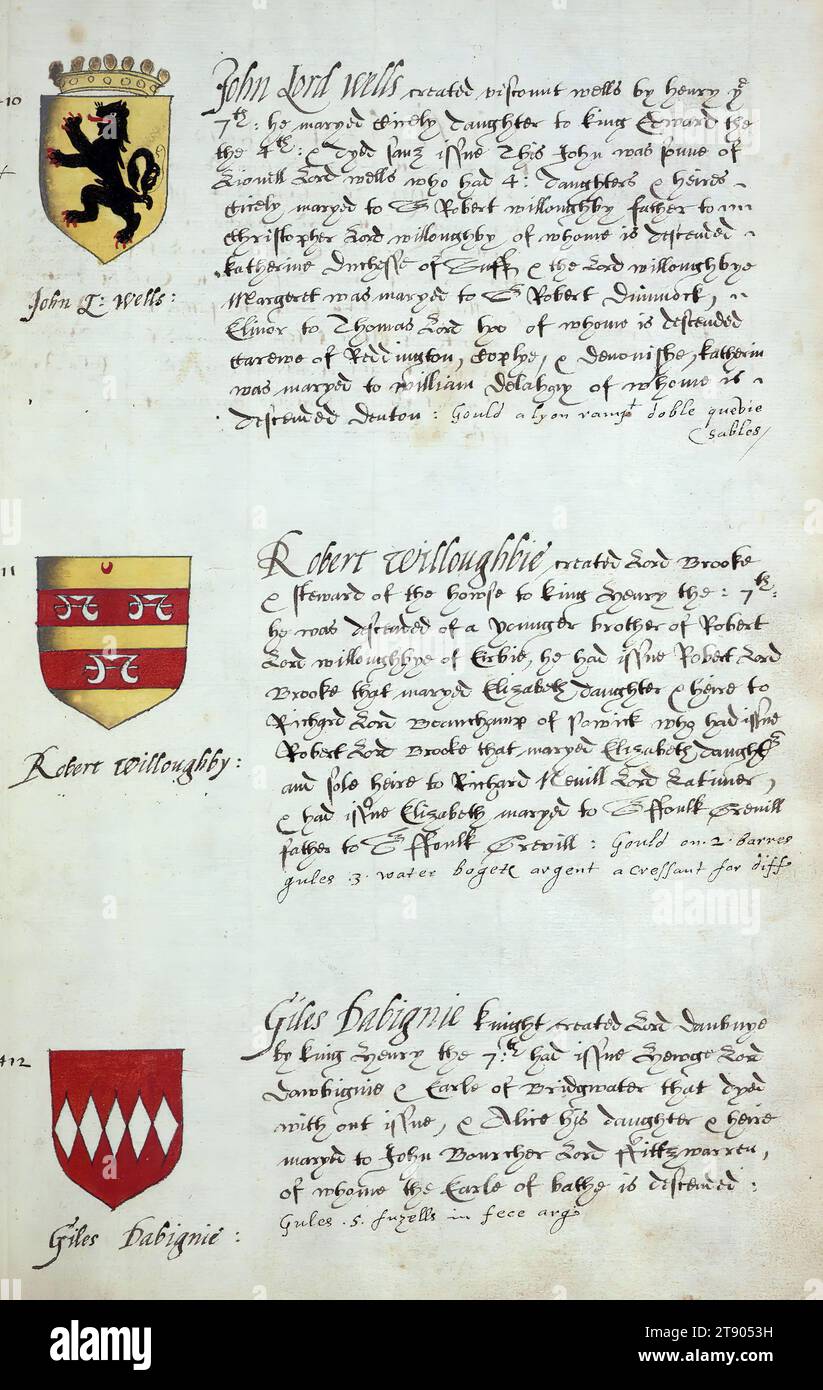 10
John Lord Wells created viscount wells by henry yᵉ
7th: he maryed Cicely daughter to king Edward the
the 4th: & dyed sanz issue This John was sonne of
Lionell Lord wells who had 4: daughters & heires
Cicely maryed to Sr Robert willoughby father to
Christopher Lord willoughby of whome is descended
katherine duchesse of Suff & the Lord willoughbye
Margeret was maryed to Sr Robert Dimmock,
Elinor to Thomas Lord hoo of whome is descended
Carewe of Beddington, Coplye, & devonishe, katherin
was maryed to william Delahay of whome is
descended denton: Gould a lyon rampt doble quevie
sables
John L: Wells:
11
Robert Willoughbie created Lord Brooke
& steward of the howse to king Henry the: 7th:
he was descended of a younger brother of Robert
Lord willoughbye of Eirbie, he had issue Robert Lord
Brooke that maryed Elizabeth daughter & heire to
Richard Lord Beauchamp of powick who had issue
Robert Lord Brooke that maryed Elizabeth daught
and sole heire to Richard Nevill Lord Latimer,
& had issue Elizabeth maryed to Sr ffoulk Grevill
father to Sr ffoulk Grevill: Gould on .2. barres
gules .3. water boget argent a cressant for diff
Robert Willoughby:
412
Giles Dabignie knight created Lord daubnye
by king Henry the 7th: had issue Henrye Lord
dawbignie & Earle of Bridgwater that dyed
with out issue, & Alice his daughter & heire
maryed to John Bourcher Lord ffittzwarren,
of whome the Earle of bathe is descended:
Gules .5. fuzells in fece arg
Giles Dabignie:
alamy
alamy
Image ID: 2T9053H
www.alamy.com